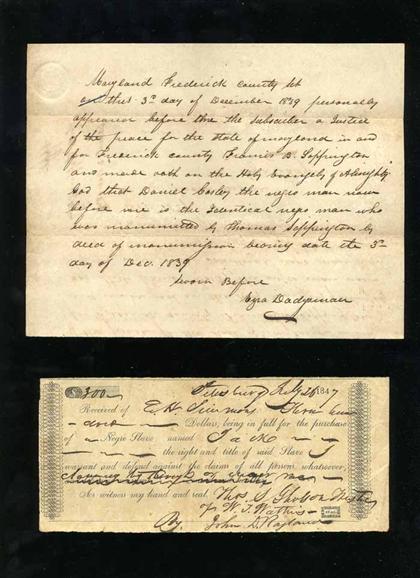 Maryland Frederick County Sct
on this 3rd day of December 1839 personally
appeared before me the subscriber a Justice
of the peace for the state of maryland in and
for Frederick County Francis B. Sappington
and made oath on the Holy Evangels of Almighty
God that Daniel the negro man now
before me is the Identical negro man who
was manumitted by Thomas Sappington by
deed of manumission bearing date the 3d
day of Dec. 1839
Sworn Before
Ezra
$300
July 26 1847
Received of E. H. Simmons Three hun
dred Dollars, being in full for the purchase
of Negro Slave named Jack
the right and title of said Slave I
warrant and defend against the claim of all persons whatsoever
As witness my hand and seal. Thos. S.
W. J. Watkins
By John D.